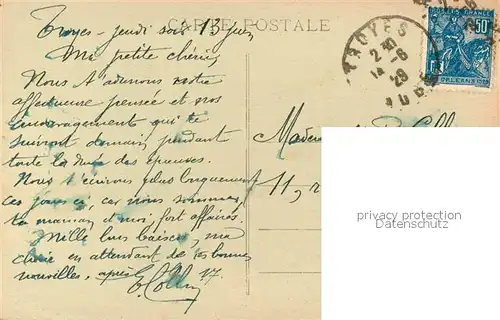 CARTE POSTALE
Troyes - jeudi soir 13 juin
Ma petite chérie,
Nous t'adressons notre
affectueuse pensée et nos
encouragements qui te
suivront demain pendant
toute la durée des épreuves.
Nous t'écrirons plus longuement
ces jours-ci, car nous sommes,
ta maman et moi, fort affairés.
Mille bons baisers, ma
chérie en attendant de tes bonnes
nouvelles, après
TROYES
14-6
29
AUBE
50c
ORLEANS
11,
privacy protection
DATENSCHUTZ